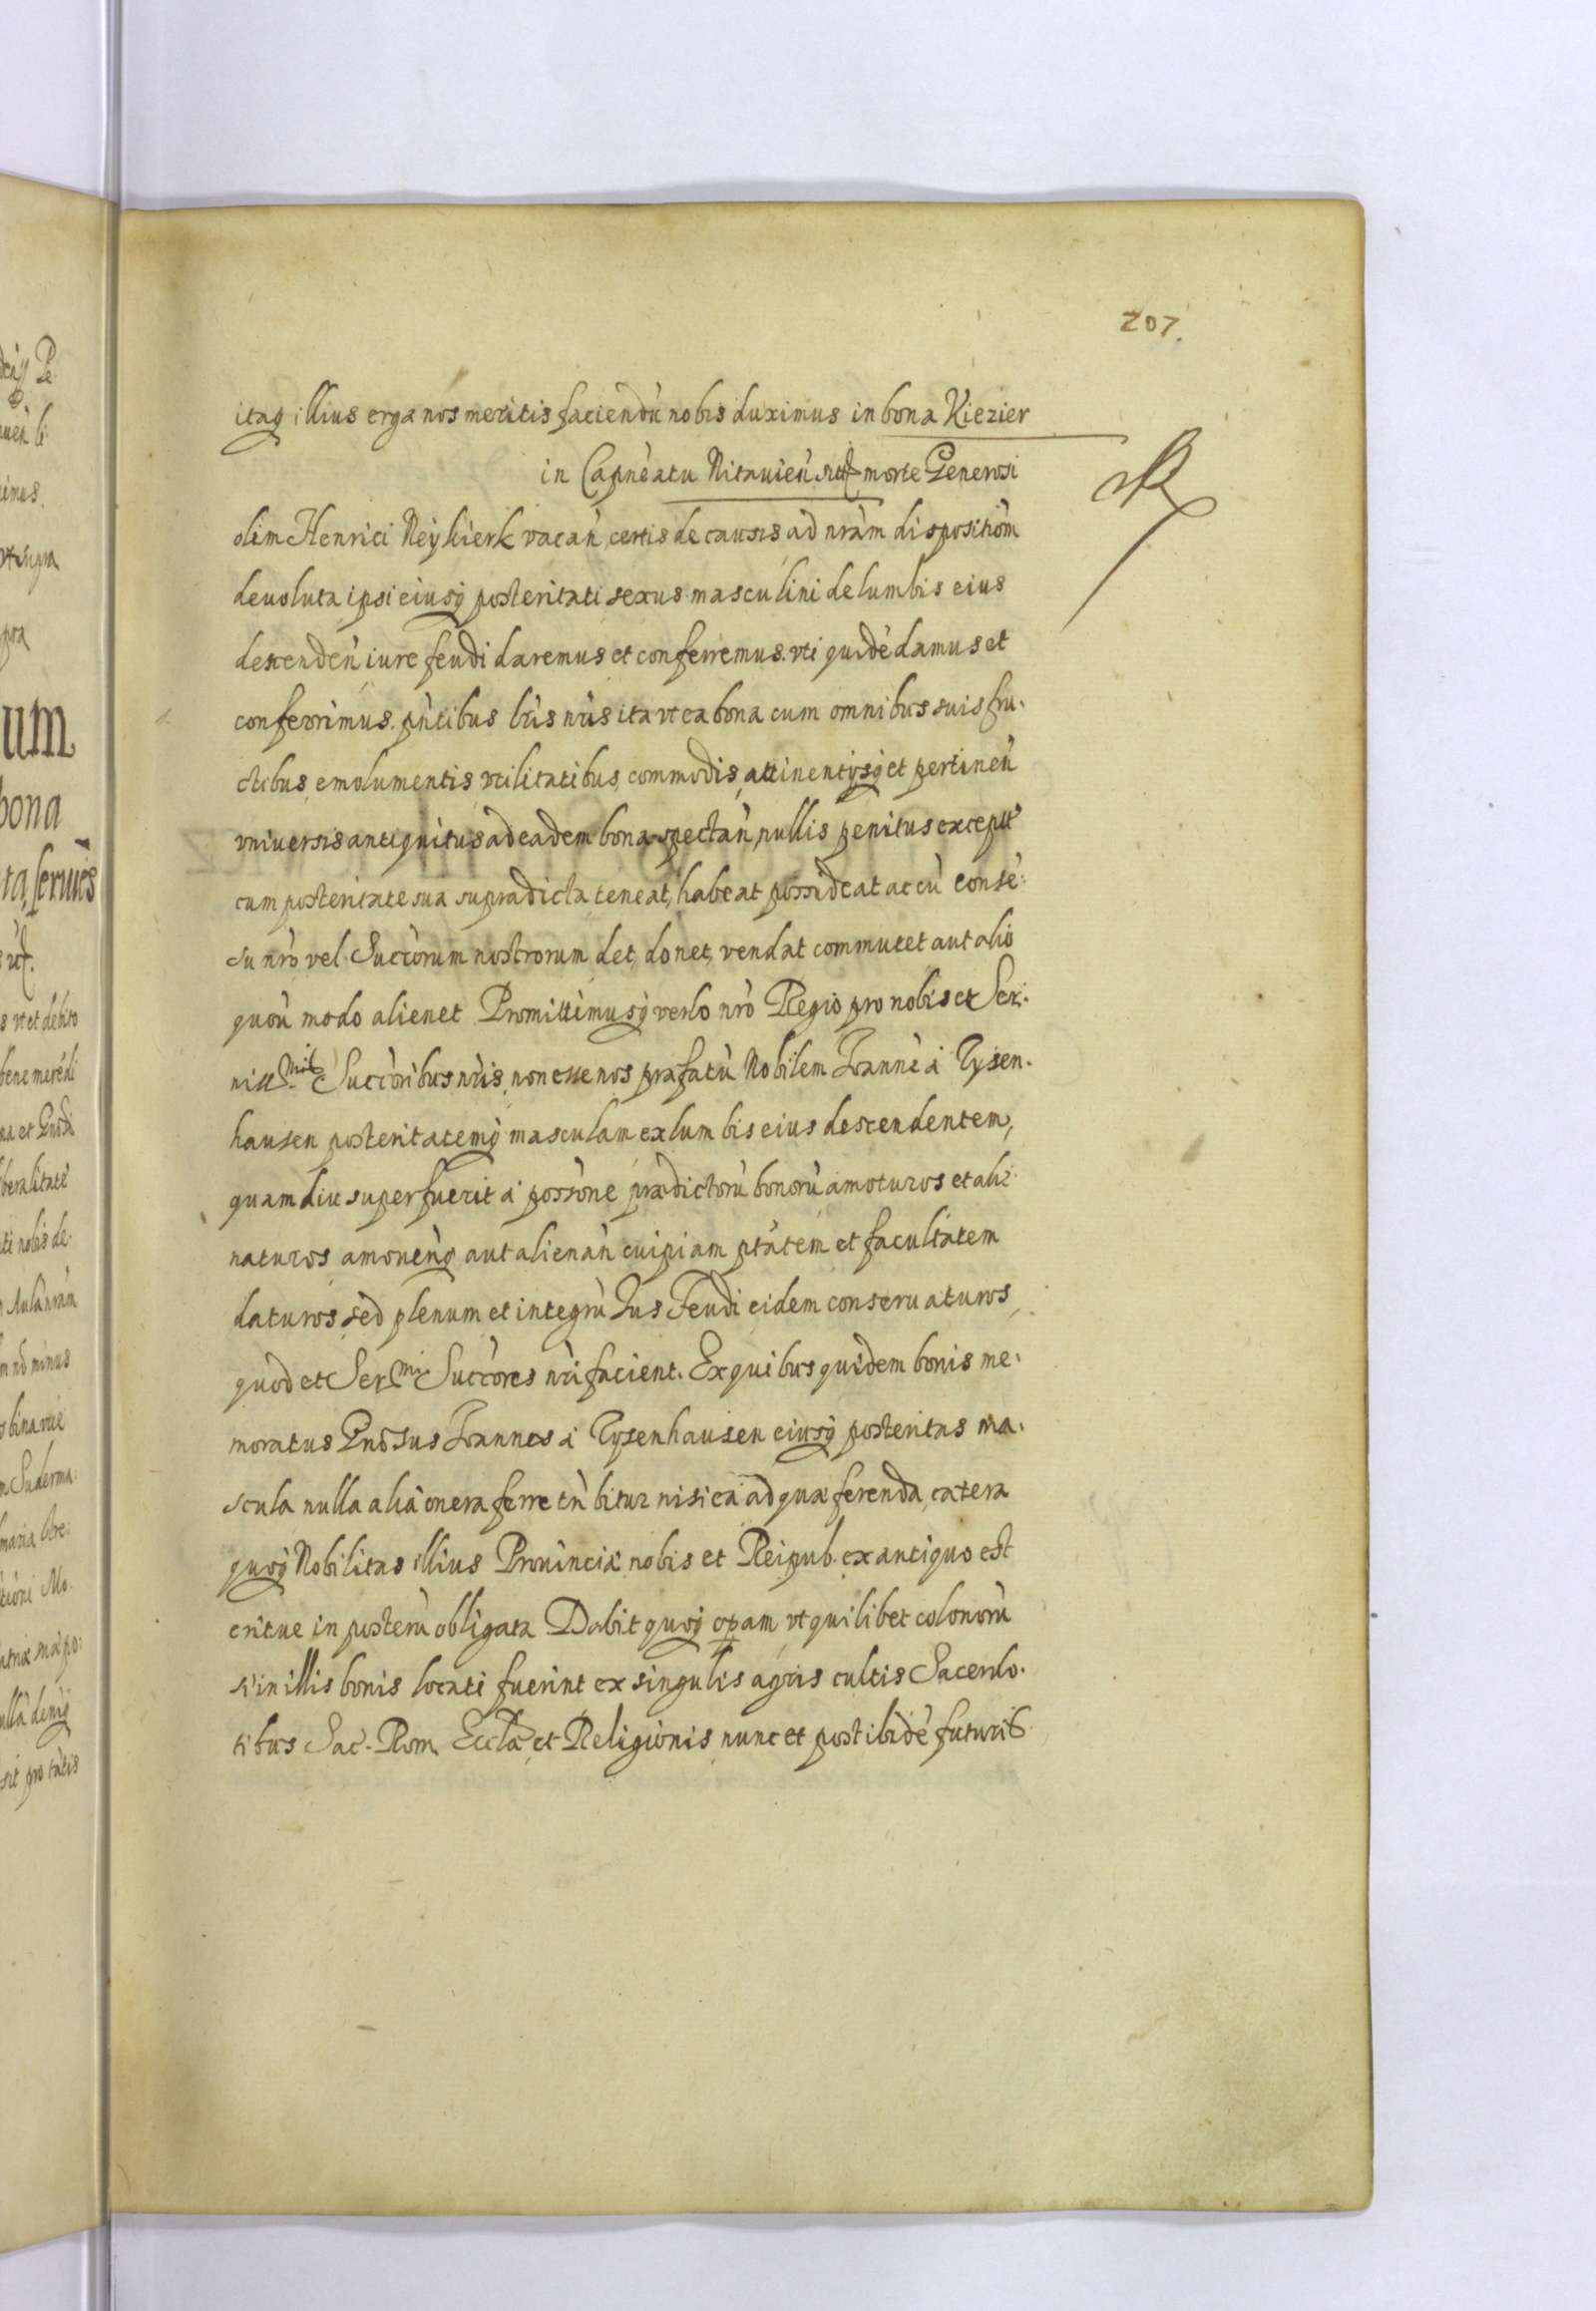 207.
itaq illius erga nos meritis faciendù nobis duximus in bona Kiezier
in Capneatu Nitauien sitis morte Generosi
olim Henrici Neykierk vacan, certis de causis ad nram dispositiom
deuoluta ipsi eiusq posteritati sexus masculini de lumbis eius
descenden iure feudi daremus et conferremus. vti quidē damus et
conferrimus. pntibus lris nris ita vt ea bona cum omnibus suis fru.
ctibus, emolumentis vtilitatibus, commodis, attinentysq et pertinen
vniuersis antiquitus ad eadem bona spectan, nullis penitus except
cum posteritate sua supradicta teneat, habeat possideat ac cù conse:
su nro vel Succorum nostrorum det, donet, vendat commutet aut alio
quou modo alienet Promittimusq verbo nro Regio pro nobis et Ser.
niss mis Succoribus nris, non esse nos præfatù Nobilem Ioannē à Tysen.
hausen posteritatemq masculam ex lumbis eius descendentem,
quamdiu superfuerit à possone prædictorù bonorù amoturos et alie
naturos amouenq aut alienan cuipiam ptatem et facultatem
daturos sed plenum et integrù Ius Feudi eidem conseruaturos
quod et Ser mi Succores nri facient. Ex quibus quidem bonis me.
moratus Gnosus Ioannes à Tysenhausen eiusq posteritas ma.
scula nulla alia onera ferre tnbitur nisi ea ad quæ ferenda cætera
quoq Nobilitas illius Prouinciæ nobis et Reipub. ex antiquo est
eritue in posterù obligata Dabit quoq opam vt quilibet colonorù
si in illis bonis locati fuerint ex singulis agris cultis Sacerdo.
tibus Sac. Rom. Ecclæ et Religionis nunc et post ibidē futuris